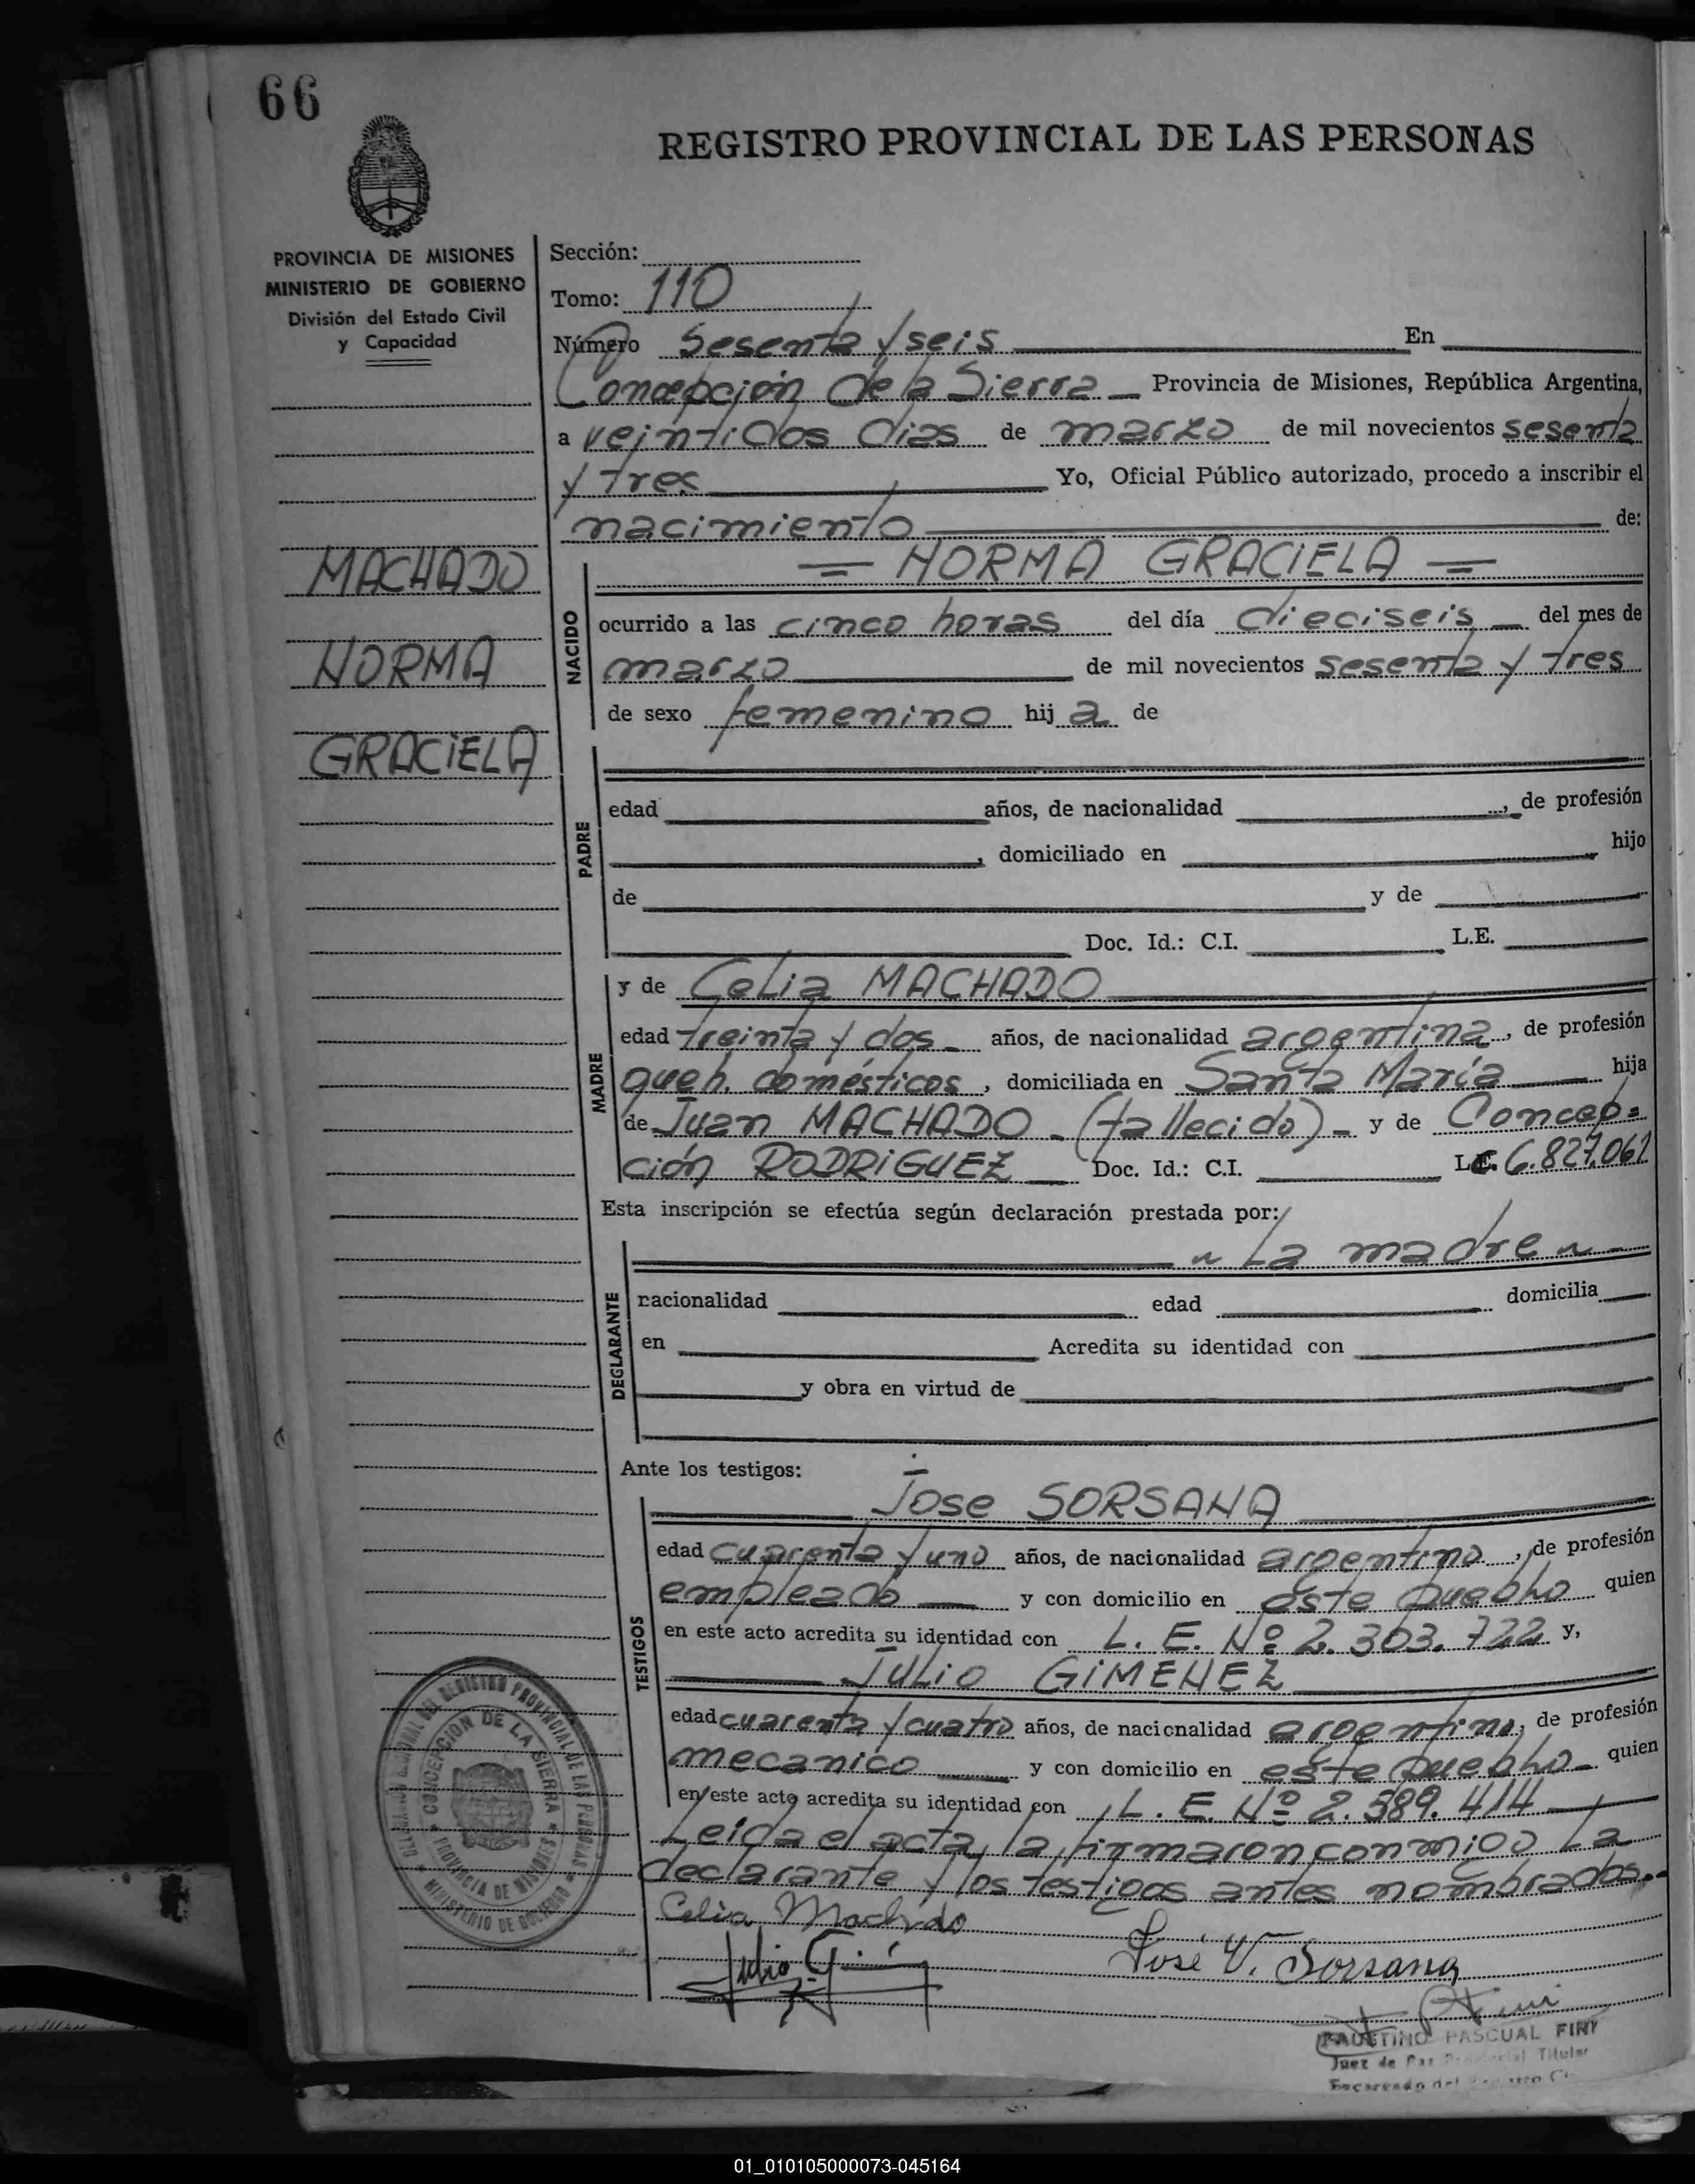 66
REGISTRO PROVINCIAL DE LAS PERSONAS
PROVINCIA DE MISIONES
MINISTERIO DE GOBIERNO
División del Estado Civil
y Capacidad
MACHADO
NORMA
GRACIELA
Sección:
Tomo: 110
Número Sesenta y seis En
Concepción de la Sierra Provincia de Misiones, República Argentina,
a veintidos dias de marzo de mil novecientos sesenta
y tres Yo, Oficial Público autorizado, procedo a inscribir el
nacimiento de:
= NORMA GRACIELA =
NACIDO
ocurrido a las cinco horas del día dieciseis del mes de
marzo de mil novecientos sesenta y tres
de sexo femenino hij a de
PADRE
edad años, de nacionalidad , de profesión
, domiciliado en hijo
de y de
Doc. Id.: C.I. L.E.
MADRE
y de Celia MACHADO
edad treinta y dos años, de nacionalidad argentina, de profesión
queh. domésticos, domiciliada en Santa María hija
de Juan MACHADO - (fallecido) - y de Concep=
ción RODRIGUEZ Doc. Id.: C.I. L.C. 6.827.061
Esta inscripción se efectúa según declaración prestada por:
~ La madre ~
DECLARANTE
nacionalidad edad domicilia
en Acredita su identidad con
y obra en virtud de
Ante los testigos:
TESTIGOS
Jose SORSANA
edad cuarenta y uno años, de nacionalidad argentino, de profesión
empleado y con domicilio en este pueblo quien
en este acto acredita su identidad con L. E. Nº 2. 303. 722 y,
JULIO GIMENEZ
edad cuarenta y cuatro años, de nacionalidad argentino, de profesión
mecanico y con domicilio en este pueblo quien
en este acto acredita su identidad con L. E. Nº 2. 589. 414
Leida el acta, la firmaron conmigo la
declarante y los testigos antes nombrados.-
Celia Machado
José V. Sorsana
FAUSTINO PASCUAL FINI
Juez de Paz Provincial Titular
Encargado del Registro
CONCEPCION DE LA SIERRA
PROVINCIA DE MISIONES
MINISTERIO DE GOBIERNO
DEL REGISTRO PROVINCIAL DE LAS PERSONAS
01_010105000073-045164